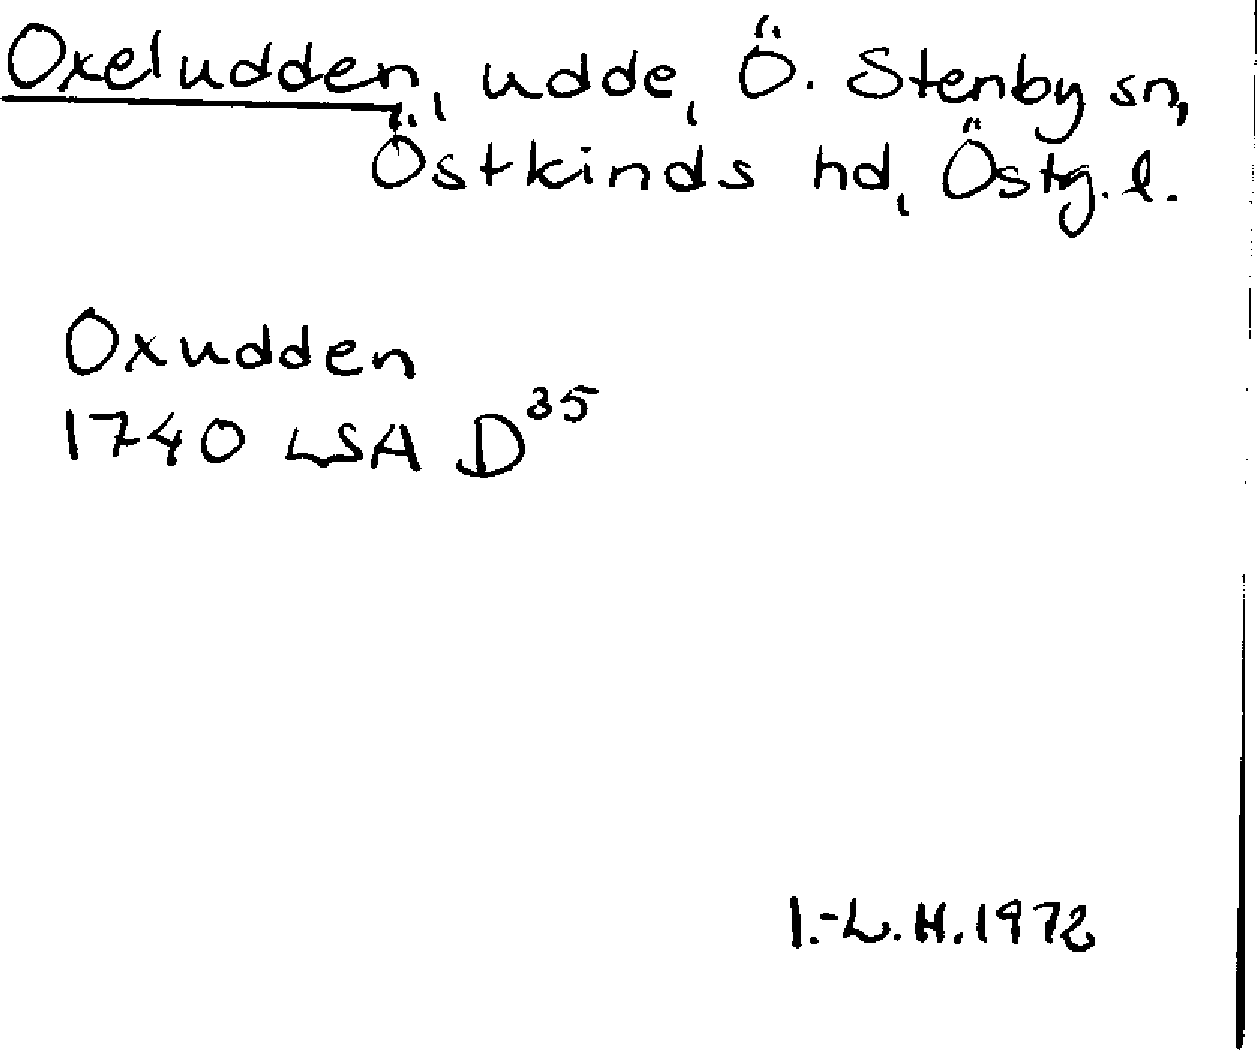 Oxeludden, udde, Ö. Stenby sn,
Östkinds hd, Östg. l.
Oxudden
1740 LSA D³⁵
I.-L. H. 1972